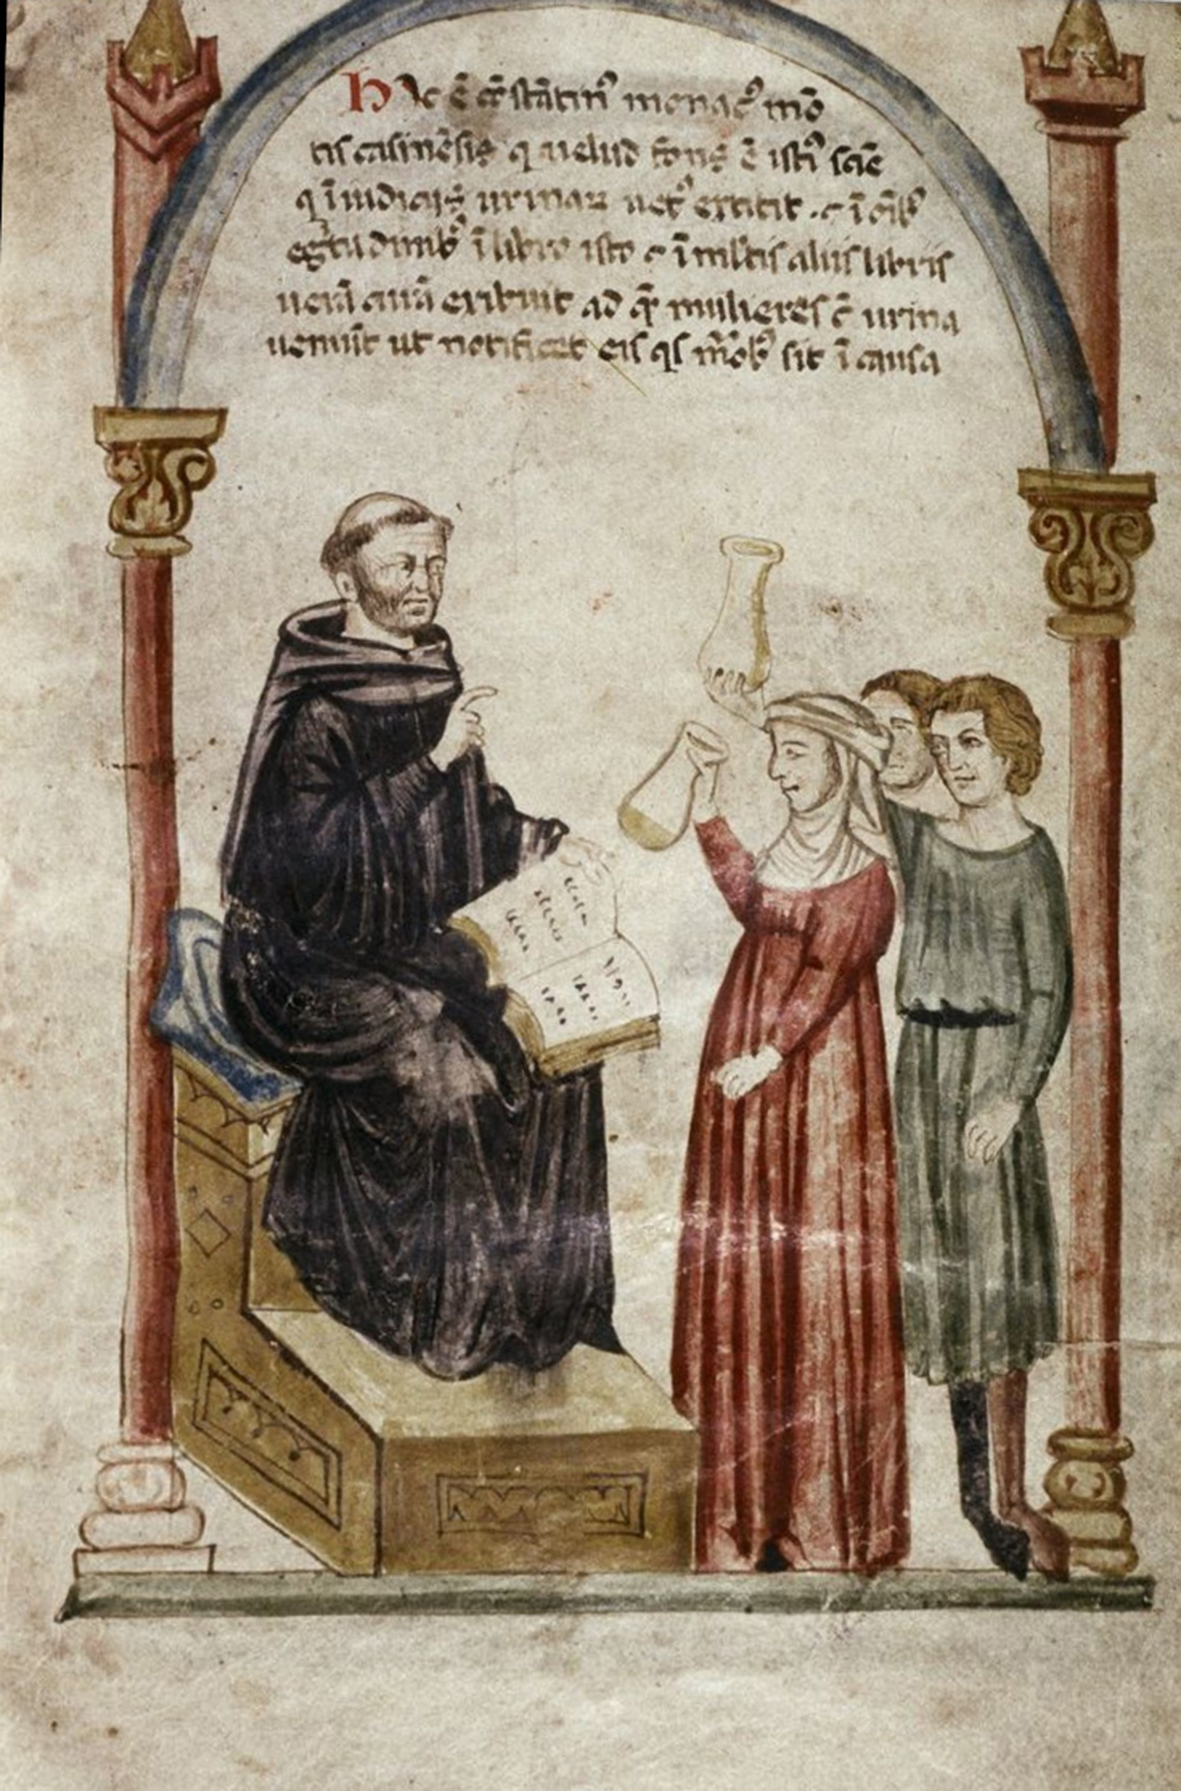 Hic ē cōstātin⁹ monac⁹ mō
tis casinēsis q uelud fons ē isti⁹ sciē
q ī iudiciis urinaꝝ uer⁹ extitit . ⁊ ī oīb⁹
egritudinib⁹ ī libro isto ⁊ ī mltis aliis libris
uerā curā exibuit ad quē mulieres cū urina
ueniūt ut notificet eis qs morb⁹ sit ī causa